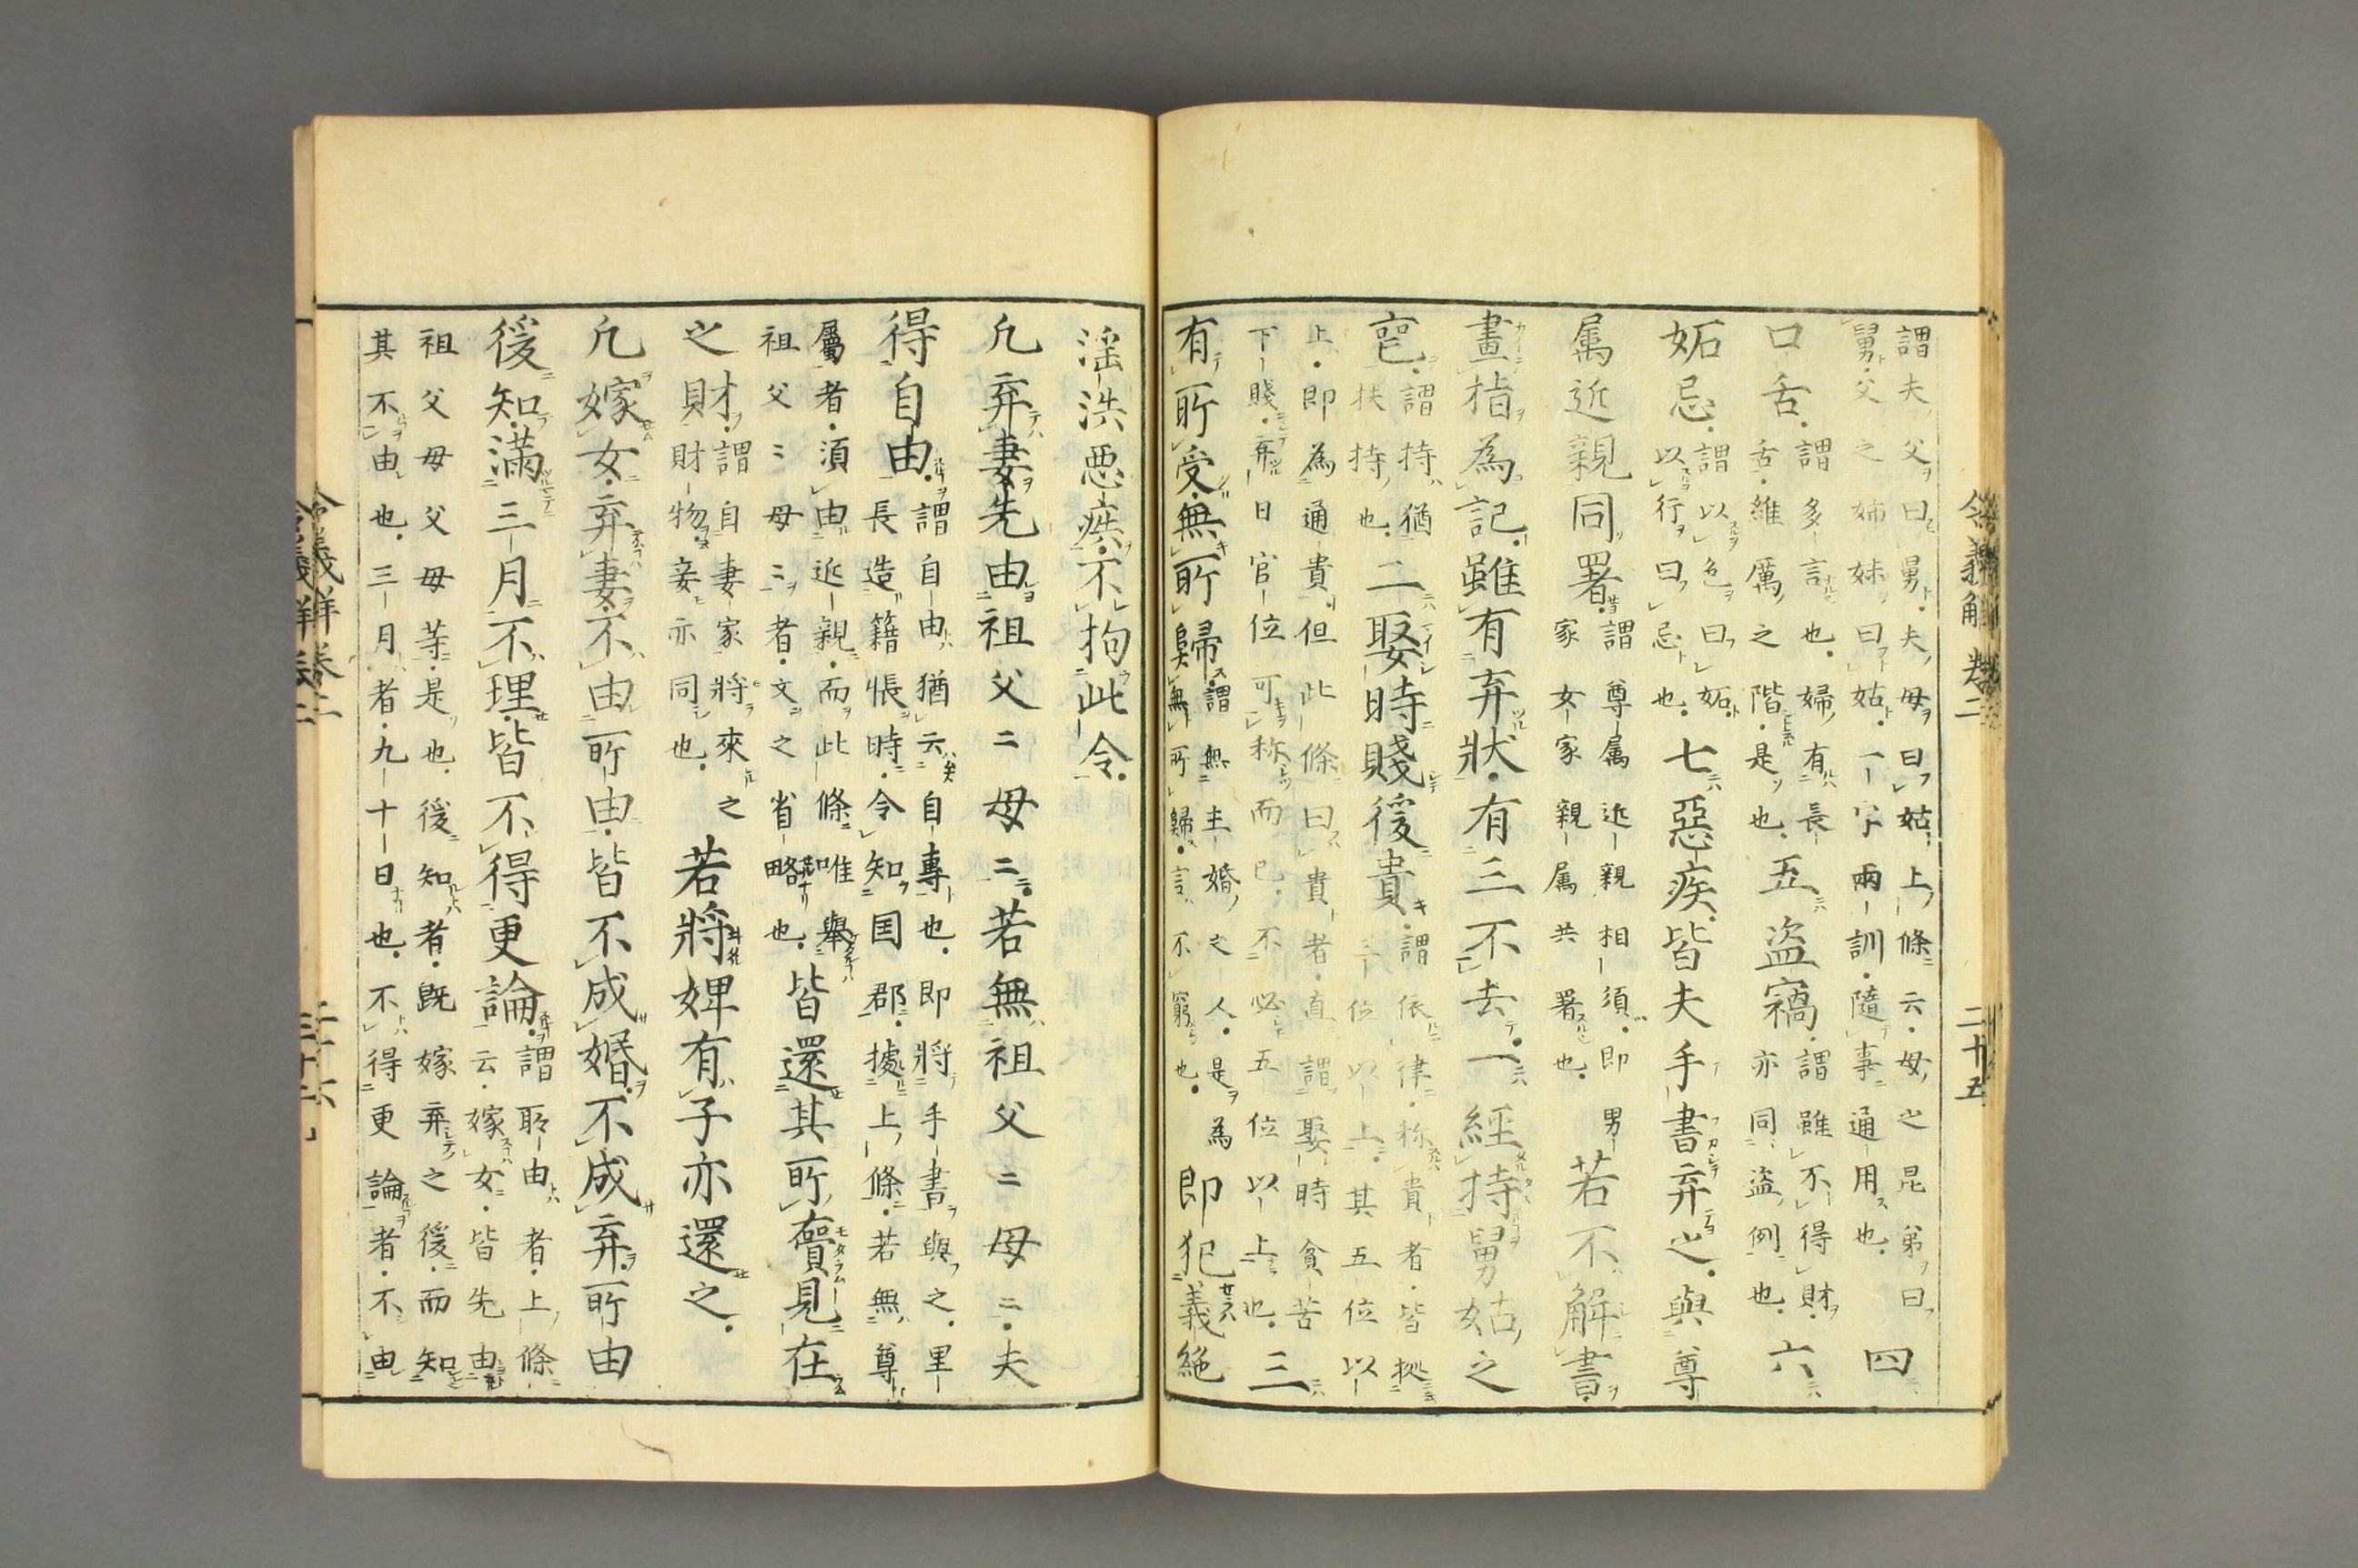 謂夫父曰舅夫母曰姑上條云母之昆弟曰
舅父之姉妹曰姑一字兩訓隨事通用也四
口舌謂多言也婦有長
舌維厲之階是也五盗竊謂雖不得財
亦同盗例也六
妬忌謂以色曰妬
以行曰忌也七惡疾皆夫手書弃之與尊
属近親同署謂尊属近親相須即男
家女家親属共署也若不解書
畫指為記雖有弃狀有三不去一經持舅姑之
喪謂持猶
扶持也二娶時賤後貴謂依律称貴者皆拠
三位以上其五位以
上即為通貴但此條曰貴者直謂娶時貧苦
下賤弃日官位可称而已不必五位以上也三
有所受無所歸謂無主婚之人是為
無所歸言不窮也即犯義絶
淫泆悪疾不拘此令
凢弃妻先由祖父二母二若無祖父二母二夫
得自由謂自由猶云自專也即將手書與之里
長造籍帳時令知国郡據上條若無尊
屬者須由近親而此條唯舉
祖父ミ母ミ者文之省略也皆還其所賷見在
之財謂自妻家將來之
財物妾亦同也若將婢有子亦還之
凢嫁女弃妻不由所由皆不成婚不成弃所由
後知満三月不理皆不得更論謂所由者上條
云嫁女皆先由
祖父母父母等是也後知者既嫁弃之後而知
其不由也三月者九十日也不得更論者不由
令義解卷二
二十五